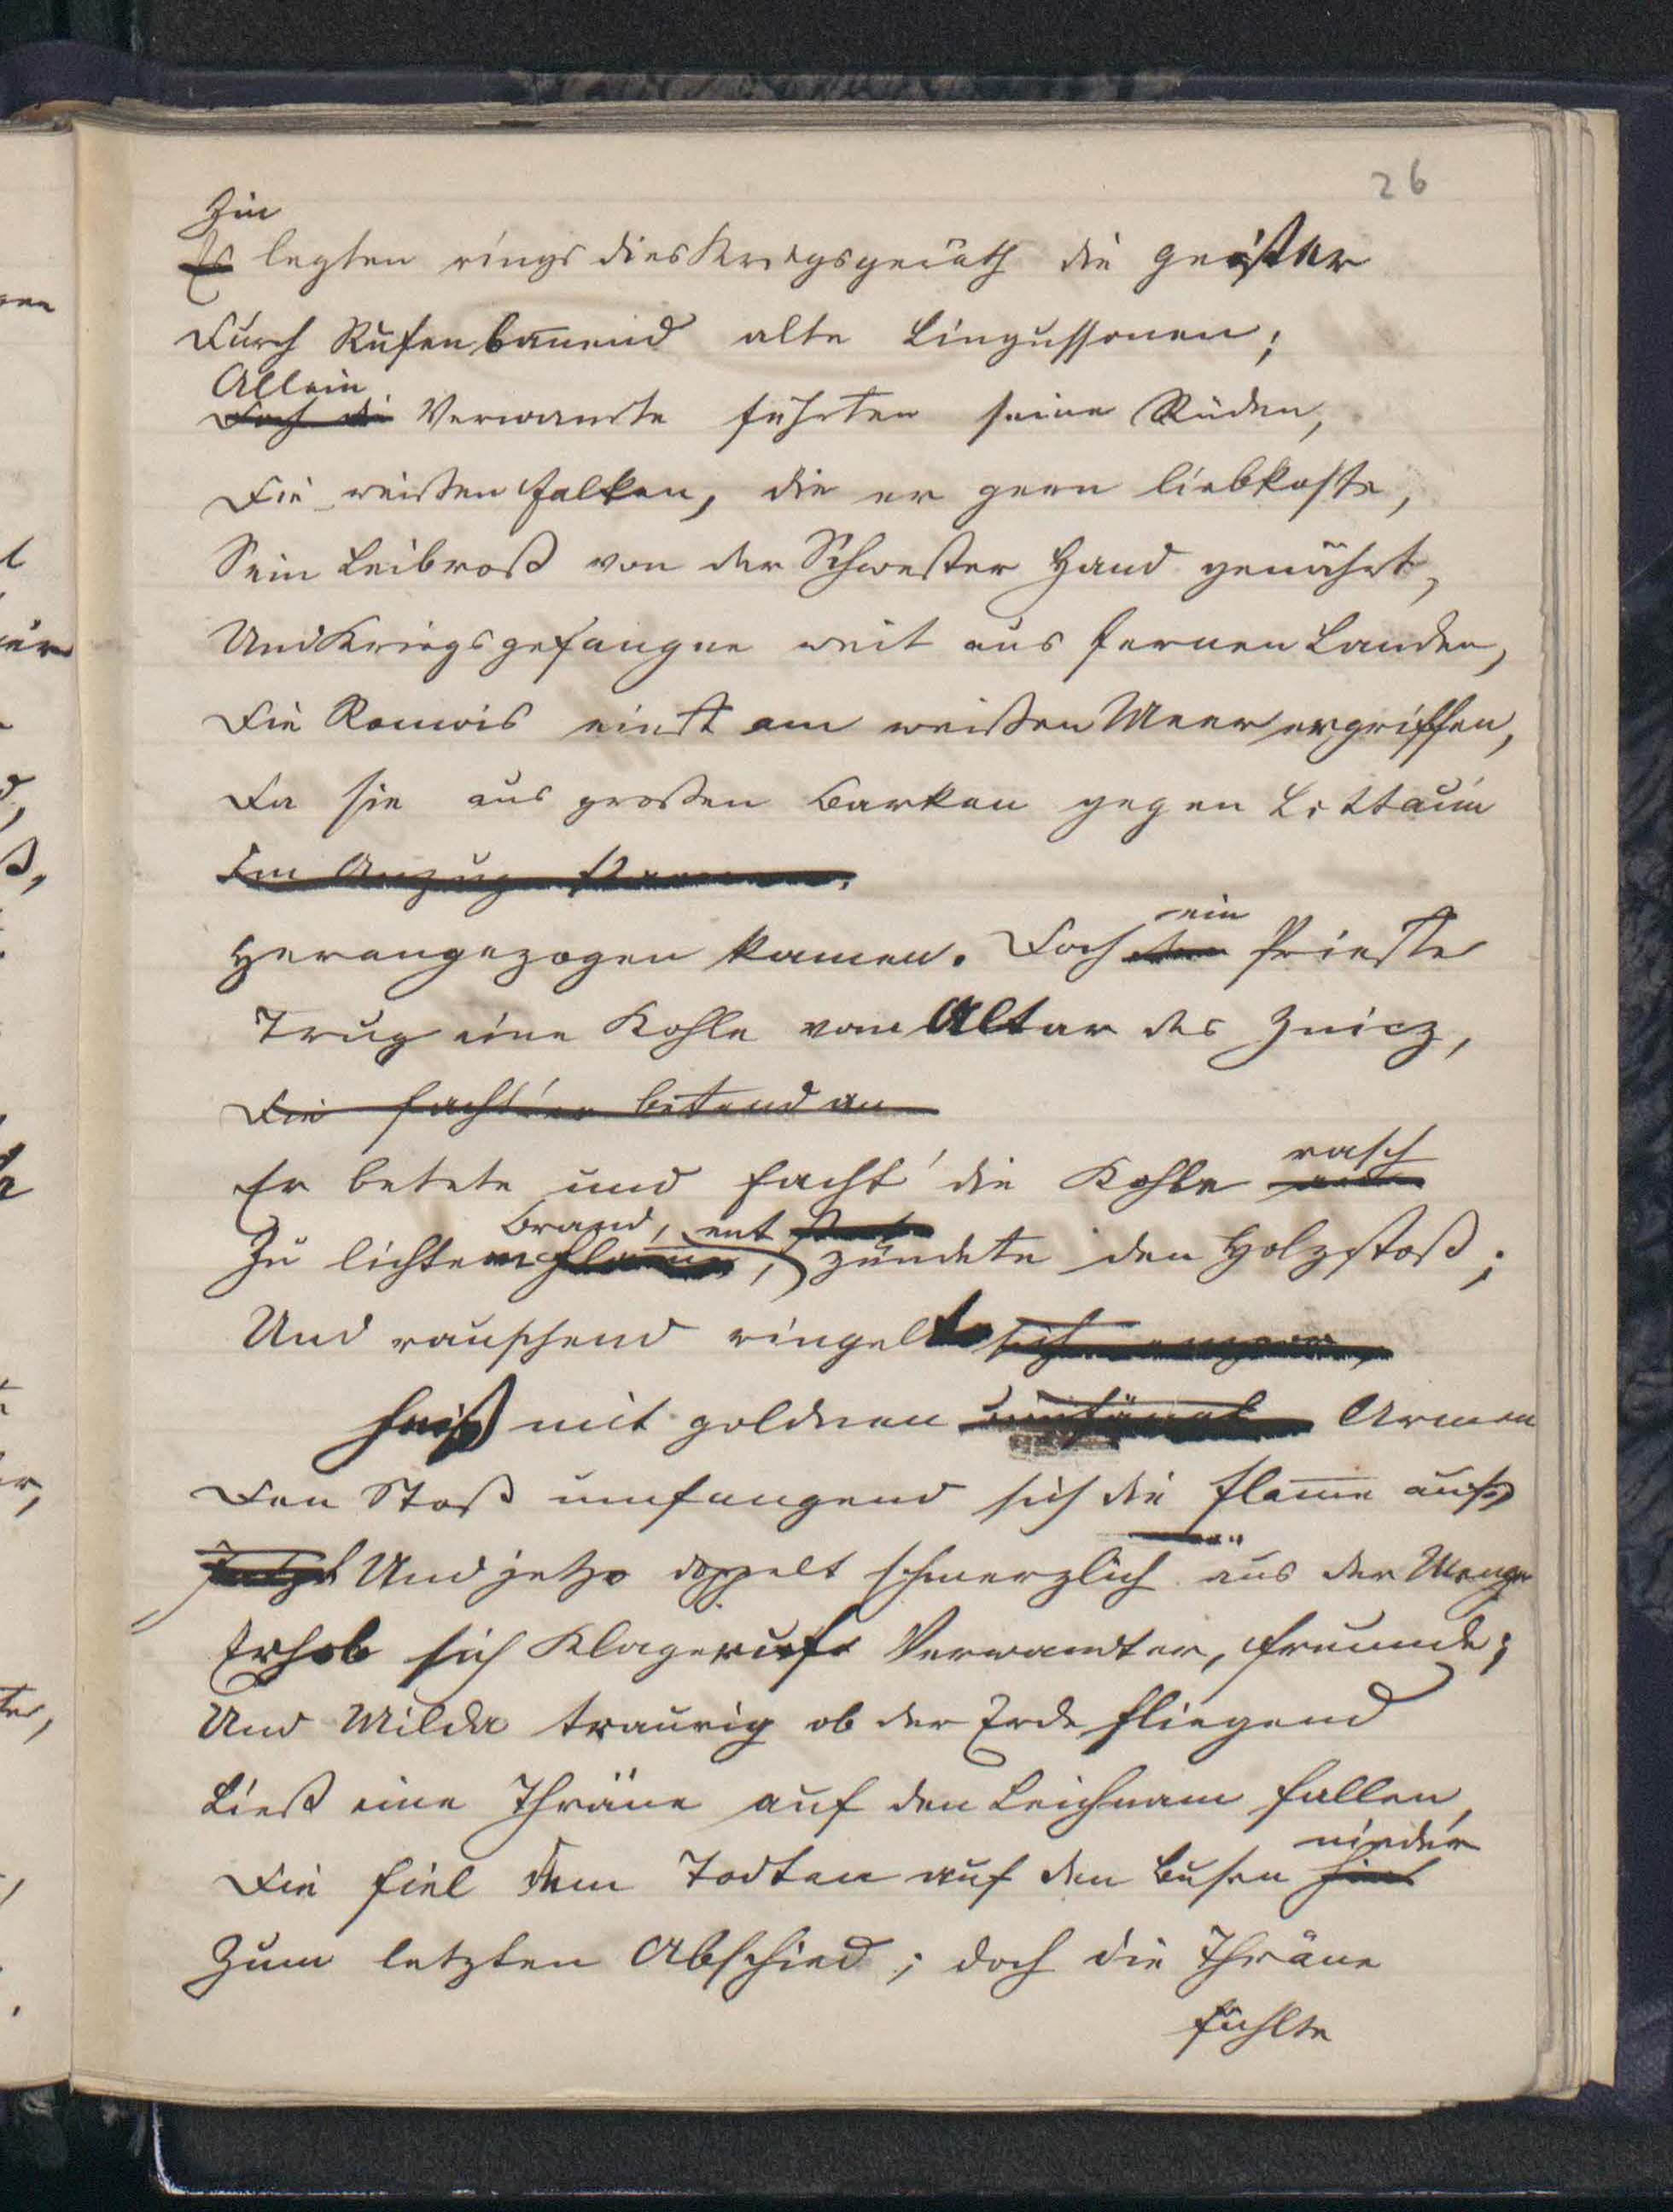 26
Hin
Es legten rings dies Kriegsgeräth die Geister
Durch Rufen bannend alte Lingussonen;
Allein
Doch die Verwandte führten seine Rüden,
Die weißen Falken, die er gern liebkoste,
Sein Leibroß von der Schwester Hand genährt,
Und Kriegsgefangne weit aus fernen Landen,
Die Romois einst am weißen Meer ergriffen,
Da sie aus großen Barken gegen Lottauin
Im Anzug
Herangezogen kamen. Doch ein Priester
Trug eine Kohle vom Altar des Znicz,
Die facht' er betend an
Er betete und facht' die Kohle rasch
Zu lichtem Brand, entzündete den Holzstoß;
Und rauschend ringelte sich
heiß mit goldnen umfängt Armen
Den Stoß umfangend sich die Flamme auf,
Jetzt Und jetzo doppelt schmerzlich aus der Menge
Erhob sich Klageruf Verwandter, Freunde;
Und Milda traurig ob der Erde fliegend
Ließ eine Thräne auf den Leichnam fallen,
Die fiel dem Todten auf den Busen nieder
Zum letzten Abschied; doch die Thräne
fühlte